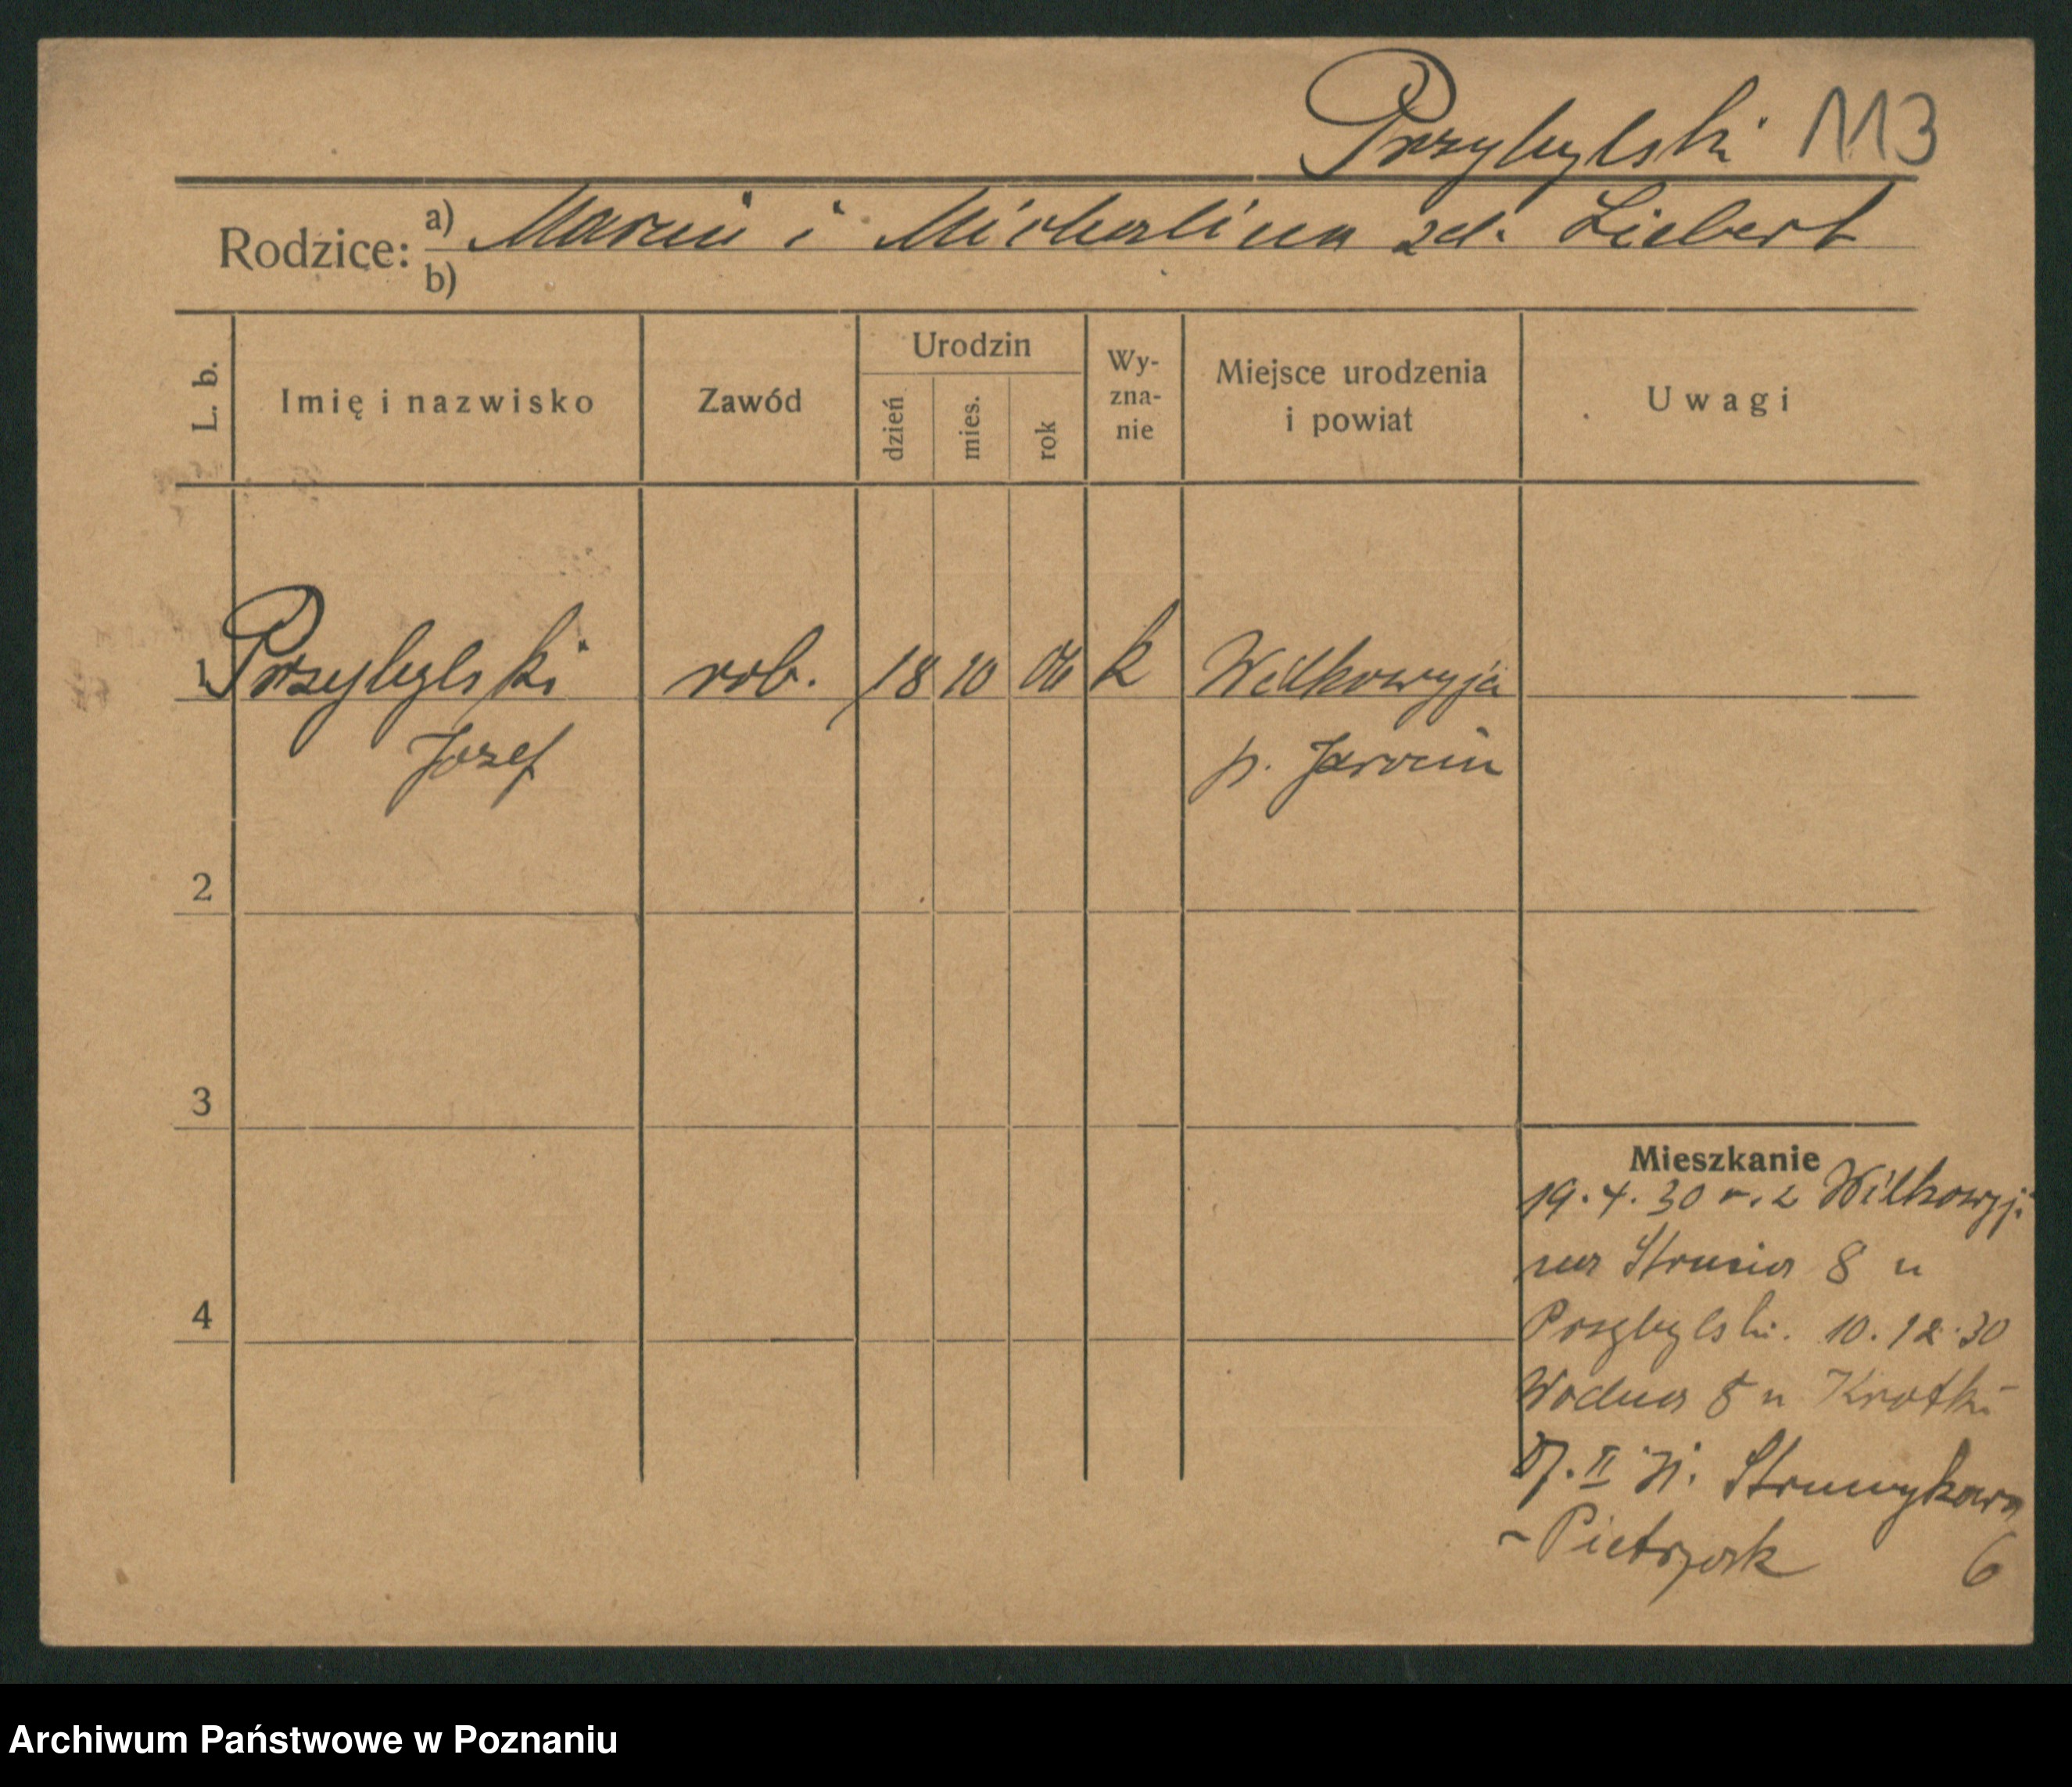 Przybylski 113
Rodzice: a) Marcin i Michalina zd. Liebert
b)
L. b. Imię i nazwisko Zawód Urodzin dzień mies. rok Wy-zna-nie Miejsce urodzenia i powiat Uwagi
1 Przybylski rob. 18 10 06 k Wilkowyja
Jozef p. Jarocin
2
3
4
Mieszkanie
19.4.30 r. z Wilkowyji
na Strusia 8 u
Przybylski. 10.12.30
Wodna 8 u Krotki
27.II 31. Strumykowa
~ Pietrzak 6
Archiwum Państwowe w Poznaniu